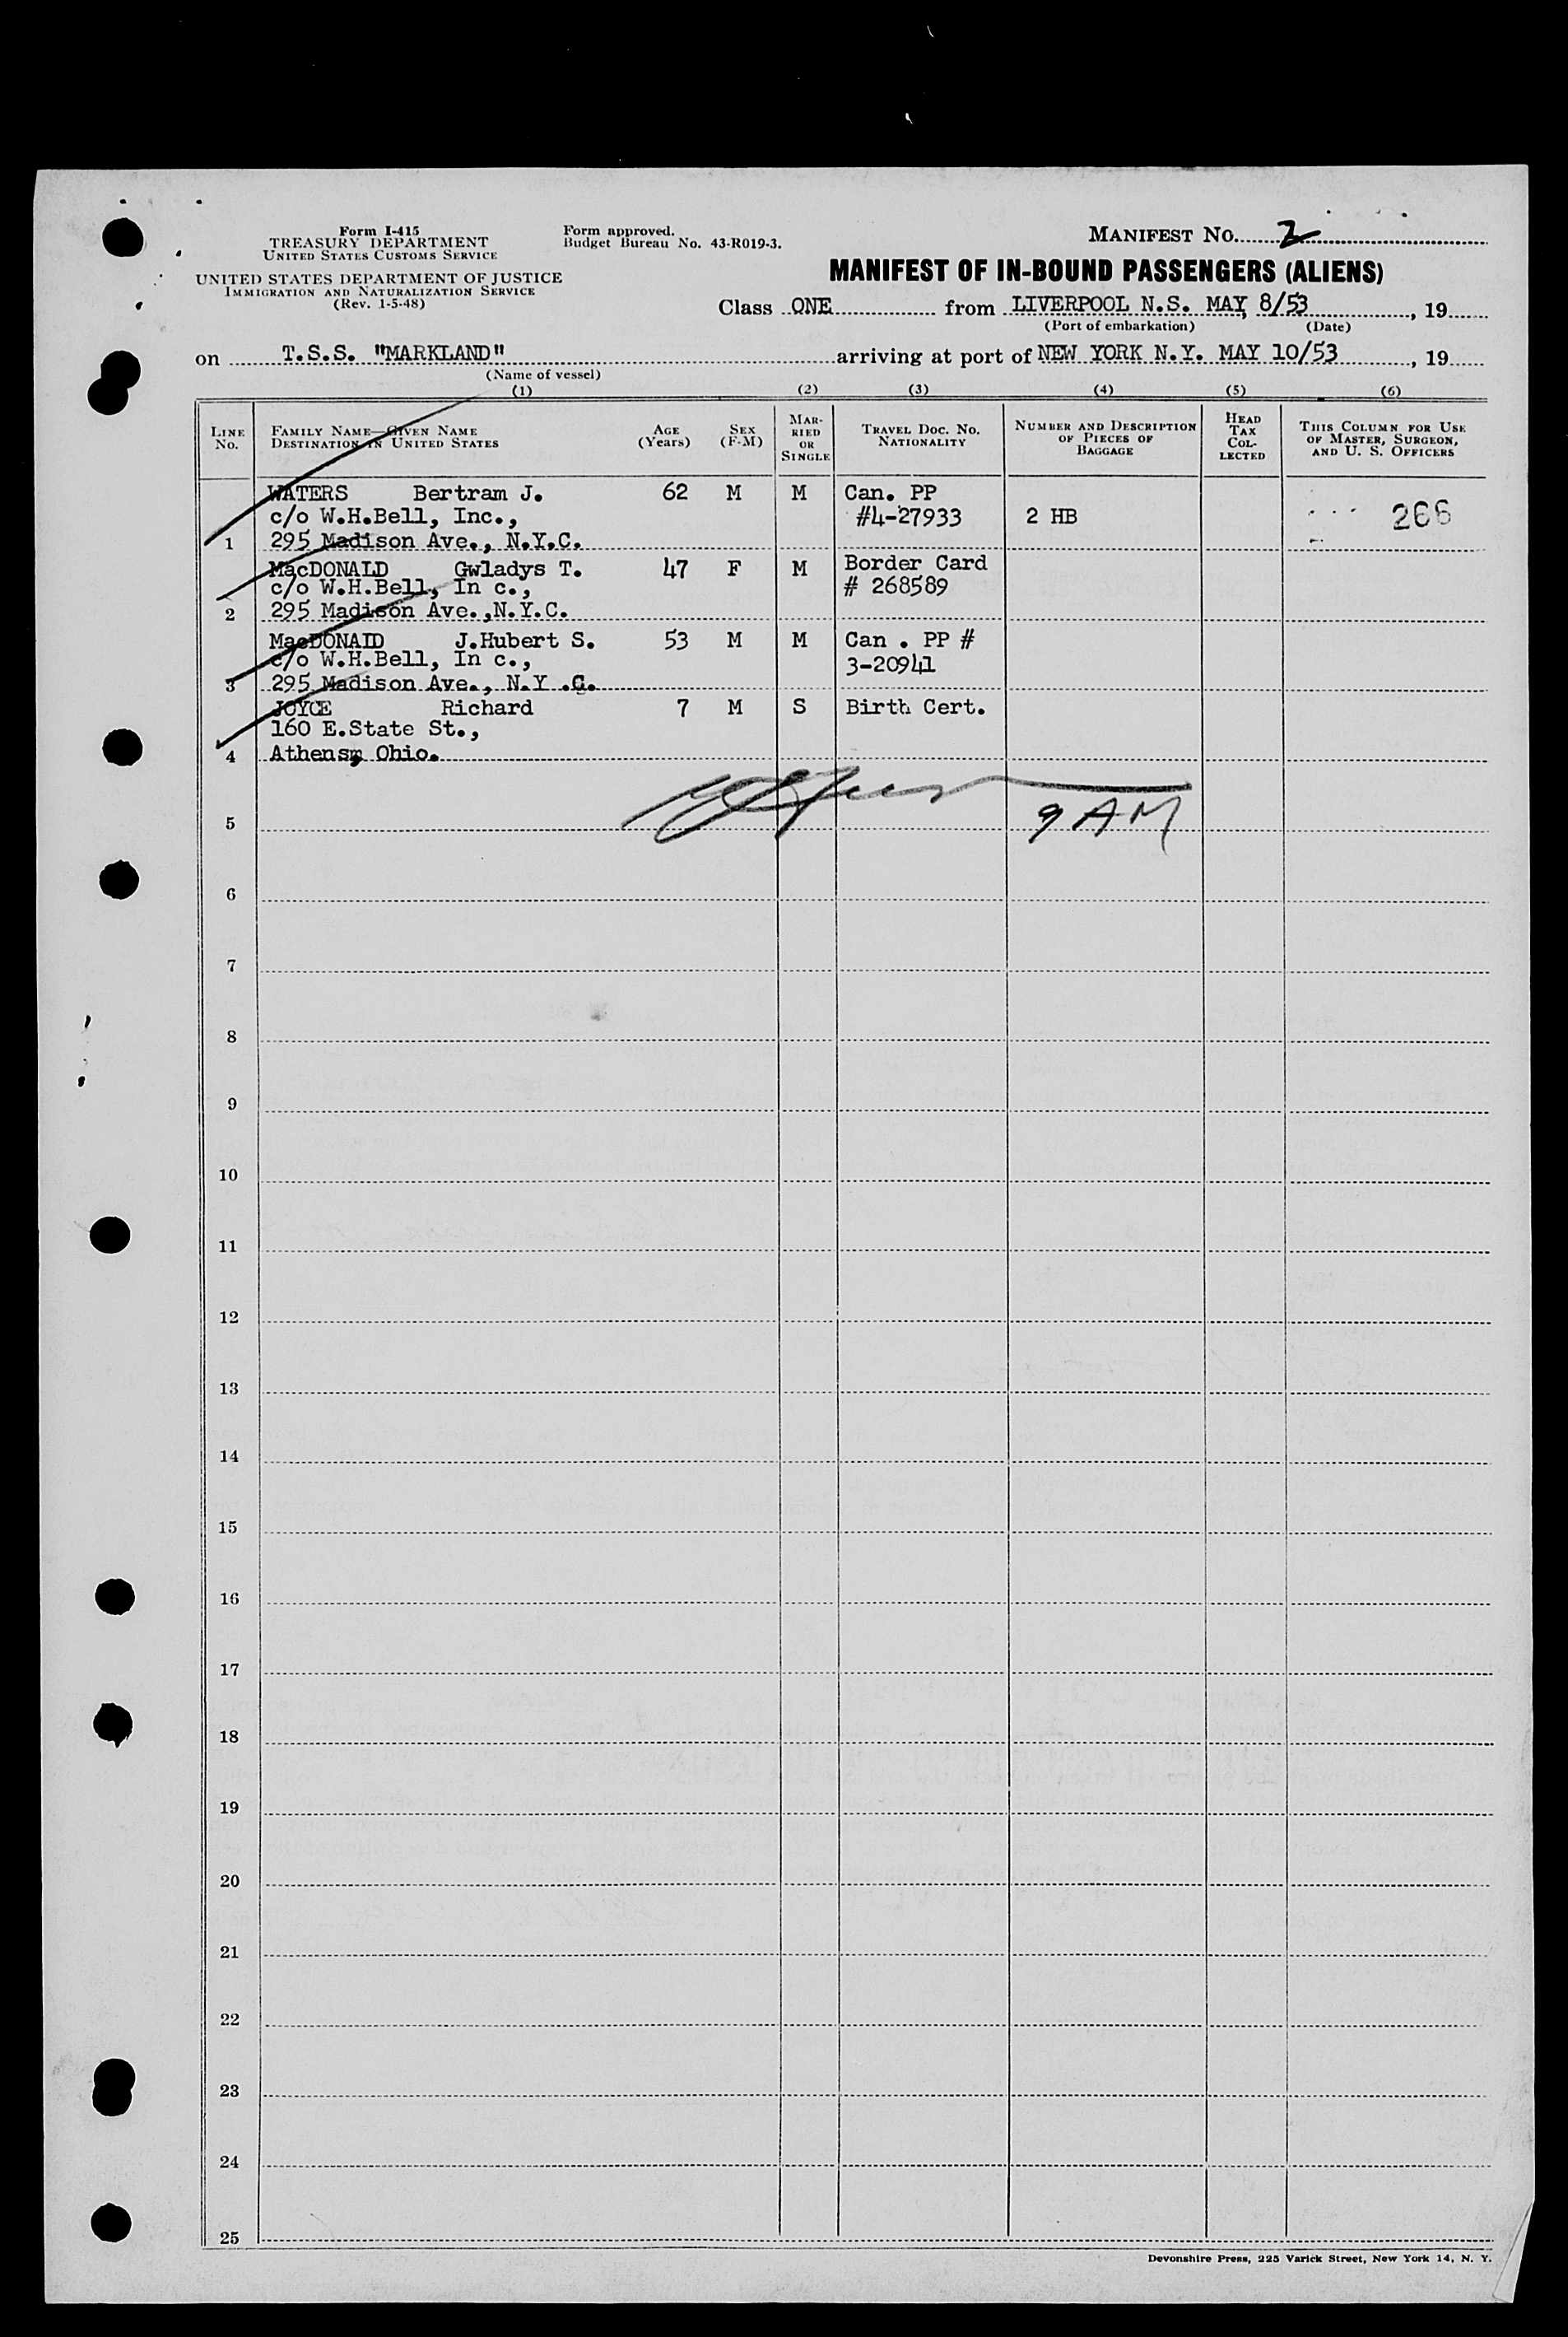 Form I-415
TREASURY DEPARTMENT
UNITED STATES CUSTOMS SERVICE
UNITED STATES DEPARTMENT OF JUSTICE
IMMIGRATION AND NATURALIZATION SERVICE
(Rev. 1-5-48)
Form approved.
Budget Bureau No. 43-R019-3.
MANIFEST NO. 2
MANIFEST OF IN-BOUND PASSENGERS (ALIENS)
Class ONE from LIVERPOOL N.S. MAY, 8/53, 19
(Port of embarkation) (Date)
on T.S.S. "MARKLAND" arriving at port of NEW YORK N.Y. MAY 10/53, 19
(Name of vessel)
(1) (2) (3) (4) (5) (6)
LINE No.
FAMILY NAME—GIVEN NAME
DESTINATION IN UNITED STATES
AGE (Years)
SEX (F-M)
MARRIED OR SINGLE
TRAVEL DOC. NO. NATIONALITY
NUMBER AND DESCRIPTION OF PIECES OF BAGGAGE
HEAD TAX COLLECTED
THIS COLUMN FOR USE OF MASTER, SURGEON, AND U. S. OFFICERS
WATERS Bertram J. 62 M M Can. PP
c/o W.H.Bell, Inc., #4-27933 2 HB 266
1 295 Madison Ave., N.Y.C.
MacDONALD Gwladys T. 47 F M Border Card
c/o W.H.Bell, In c., # 268589
2 295 Madison Ave.,N.Y.C.
MacDONAID J.Hubert S. 53 M M Can . PP #
c/o W.H.Bell, In c., 3-20941
3 295 Madison Ave., N.Y .C.
JOYCE Richard 7 M S Birth Cert.
160 E.State St.,
4 Athens, Ohio.
5 9 AM
6
7
8
9
10
11
12
13
14
15
16
17
18
19
20
21
22
23
24
25
Devonshire Press, 225 Varick Street, New York 14, N. Y.